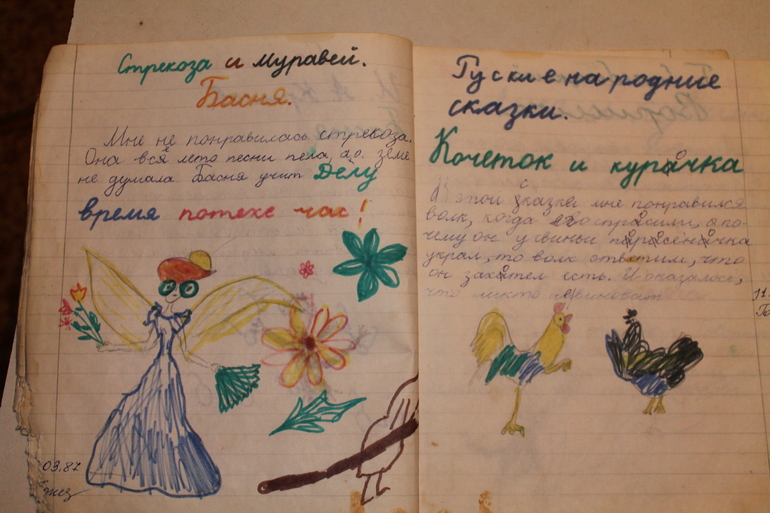 Стрекоза и Муравей.
Басня.
Мне не понравилась стрекоза.
Она всё лето песни пела, а о. зиме
не думала. Басня учит Делу
время потехе час!
03.87
Русские народные
сказки.
Кочеток и курочка
В этой сказке мне понравился
волк, когда его спросили, а по-
чему он у свиньи поросёночка
украл, то волк ответил, что
он захотел есть. И оказалось,
что никто
11.